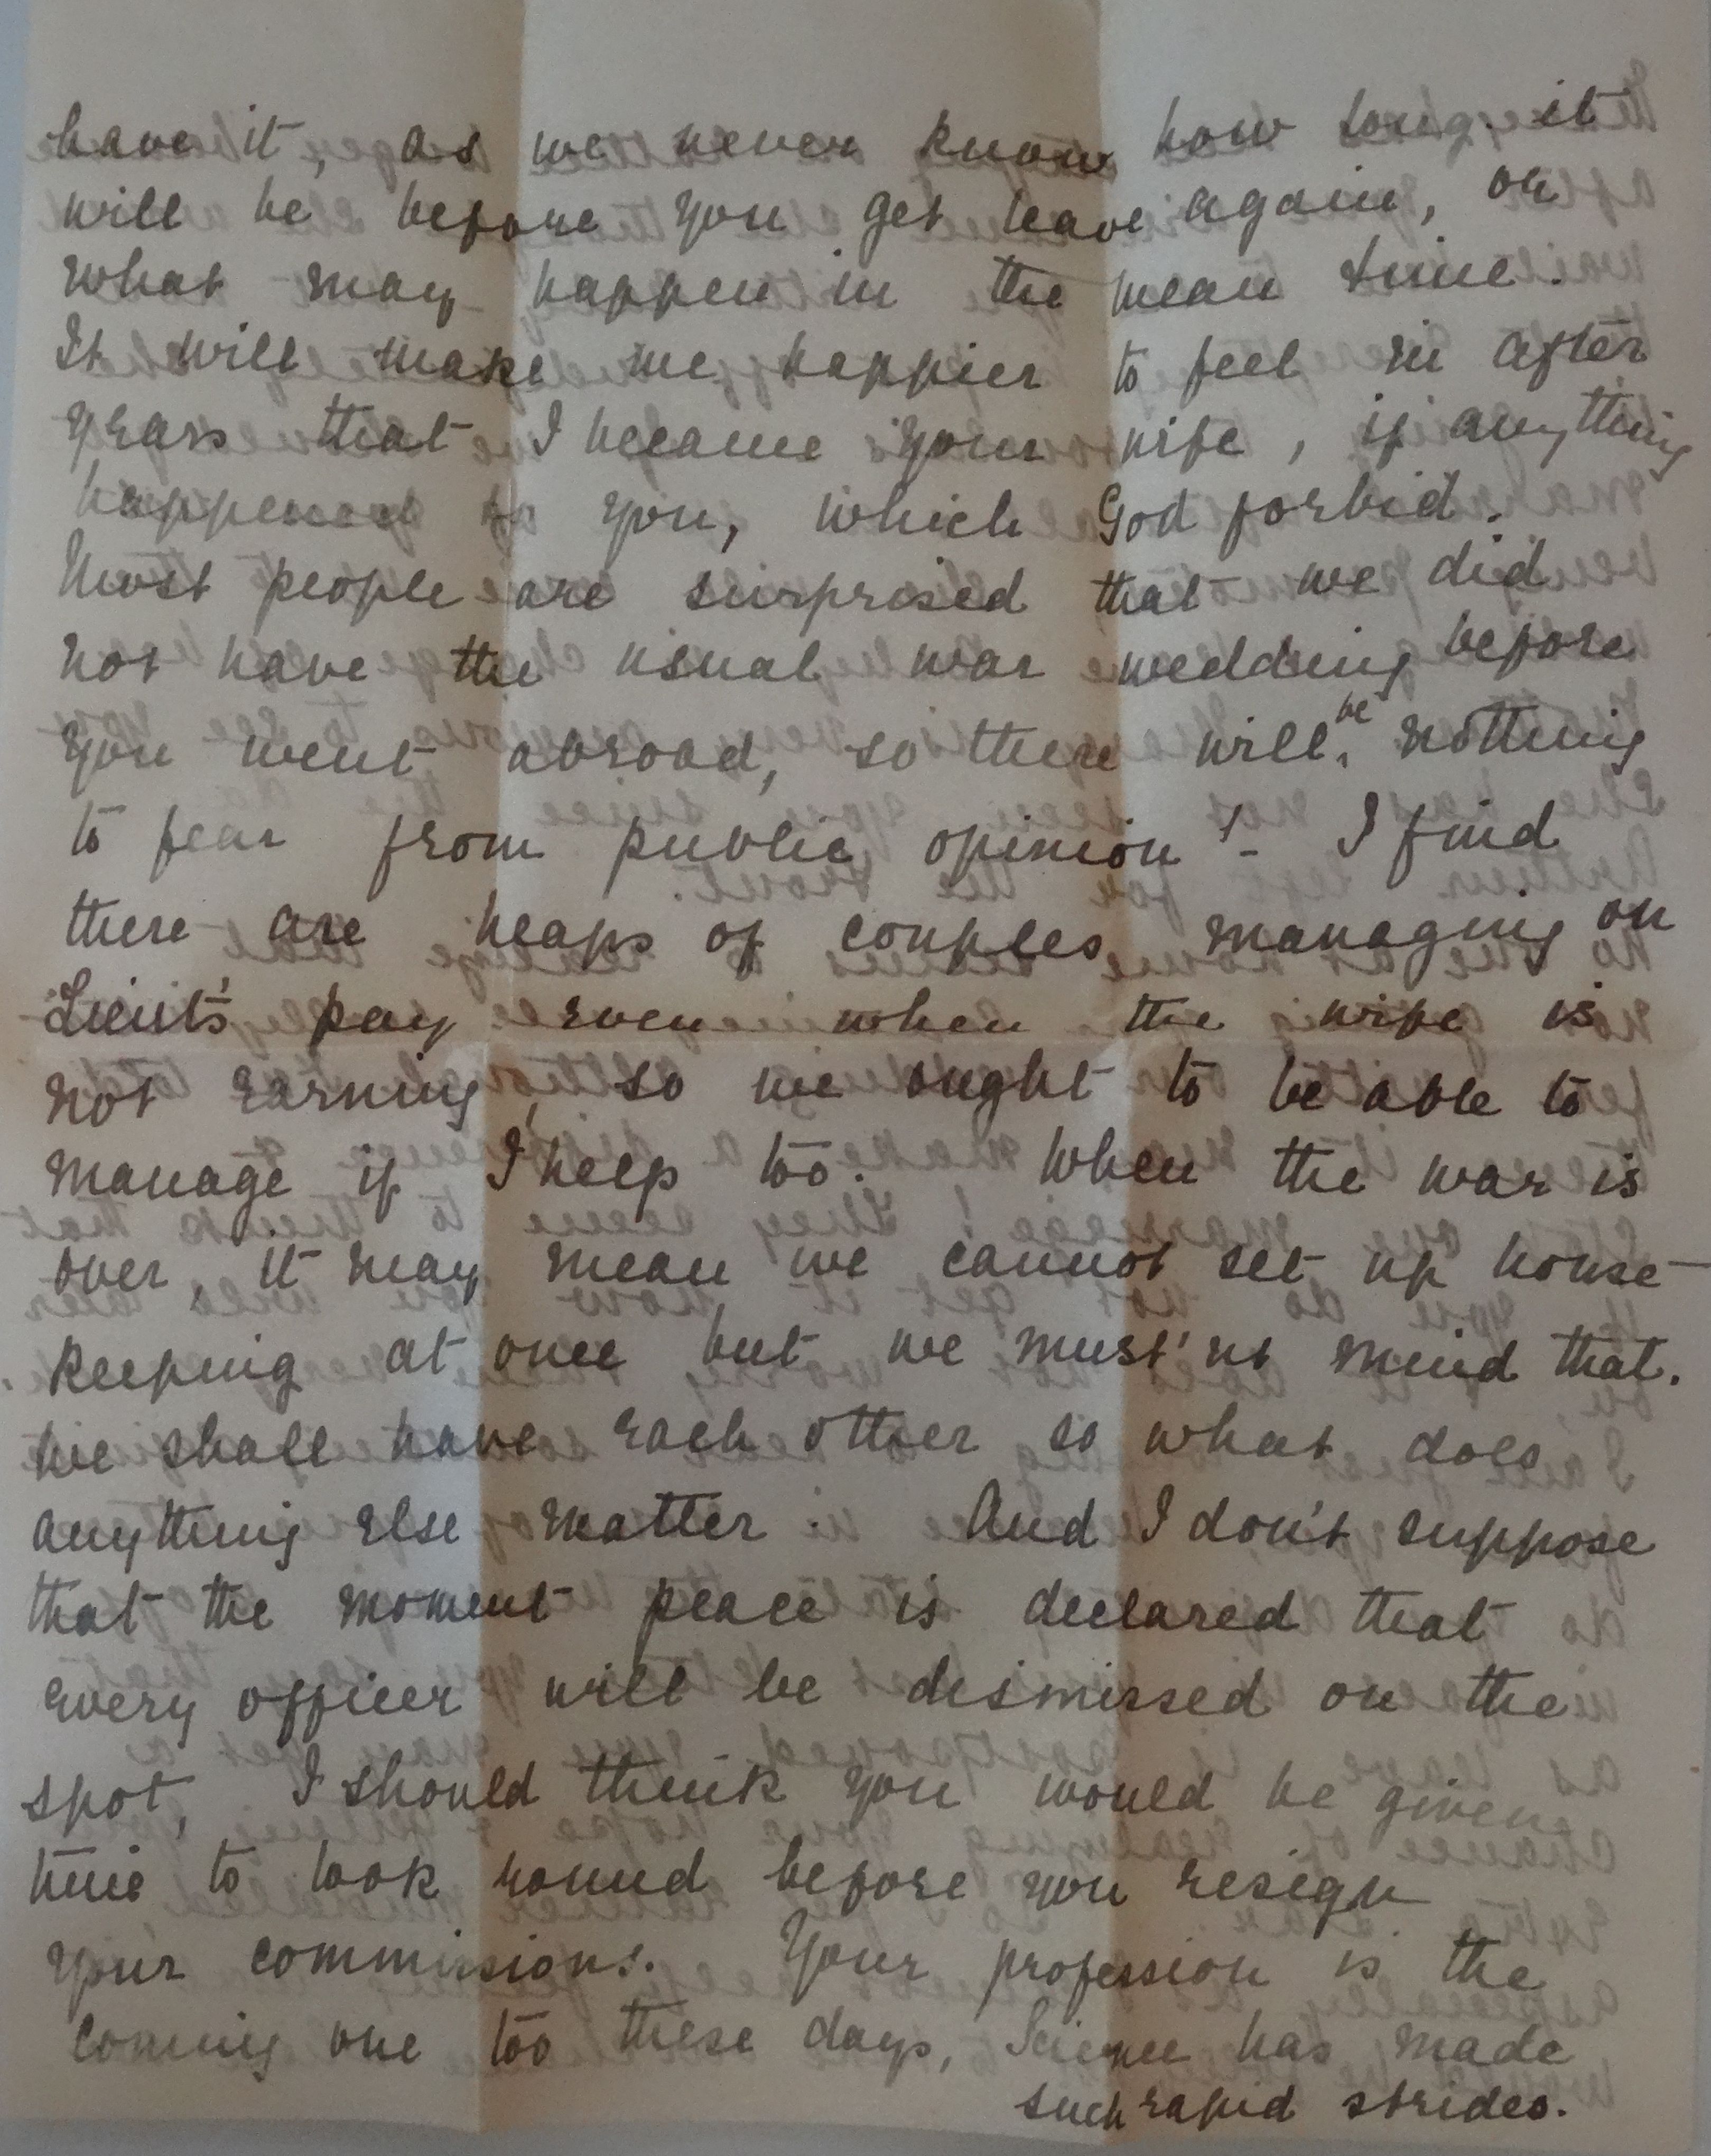 have it, as we never know how long it
will be before you get leave again, or
what may happen in the mean time.
It will make me happier to feel in after
years that I became your wife, if anything
happened to you, which God forbid.
Most people are surprised that we did
not have the usual war wedding before
you went abroad, so there will be nothing
to fear from public opinion! - I find
there are heaps of couples managing on
Lieut's pay even when the wife is
not earning, so we ought to be able to
manage if I help too. When the war is
over, it may mean we cannot set up house-
keeping at once but we must'nt mind that.
We shall have each other so what does
anything else matter. And I don't suppose
that the moment peace is declared that
every officer will be dismissed on the
spot, I should think you would be given
time to look round before you resign
your commissions. Your profession is the
coming one too these days, Science has made
such rapid strides.